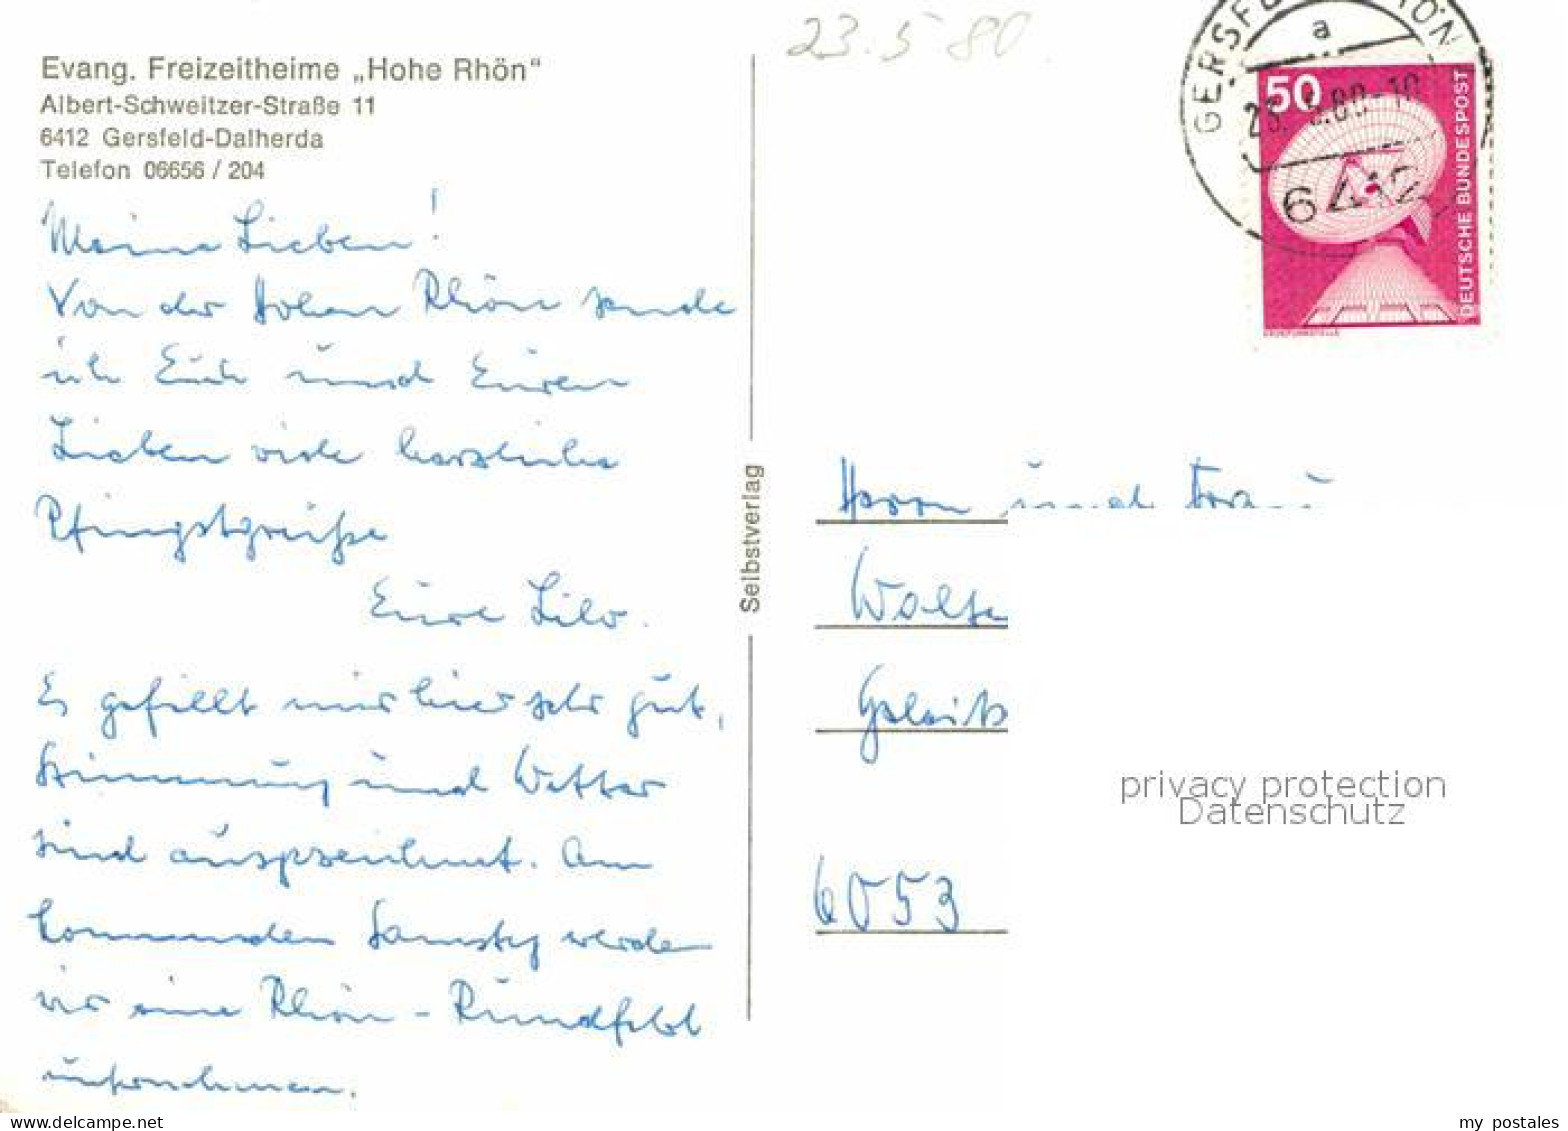 23.5 80.
Evang. Freizeitheime „Hohe Rhön“
Albert-Schweitzer-Straße 11
6412 Gersfeld-Dalherda
Telefon 06656 / 204
Meine Lieben!
Von der Hohen Rhön sende
ich Euch und Euren
Lieben viele herzliche
Pfingstgrüße
Eure Lilo.
Es gefällt mir hier sehr gut,
Stimmung und Wetter
sind ausgezeichnet. Am
kommenden Samstag werden
wir eine Rhön-Rundfahrt
unternehmen.
Selbstverlag
a
6412
50
DEUTSCHE BUNDESPOST
ERDEFUNKSTELLE
Herrn und Frau
6053
privacy protection
Datenschutz
my postales